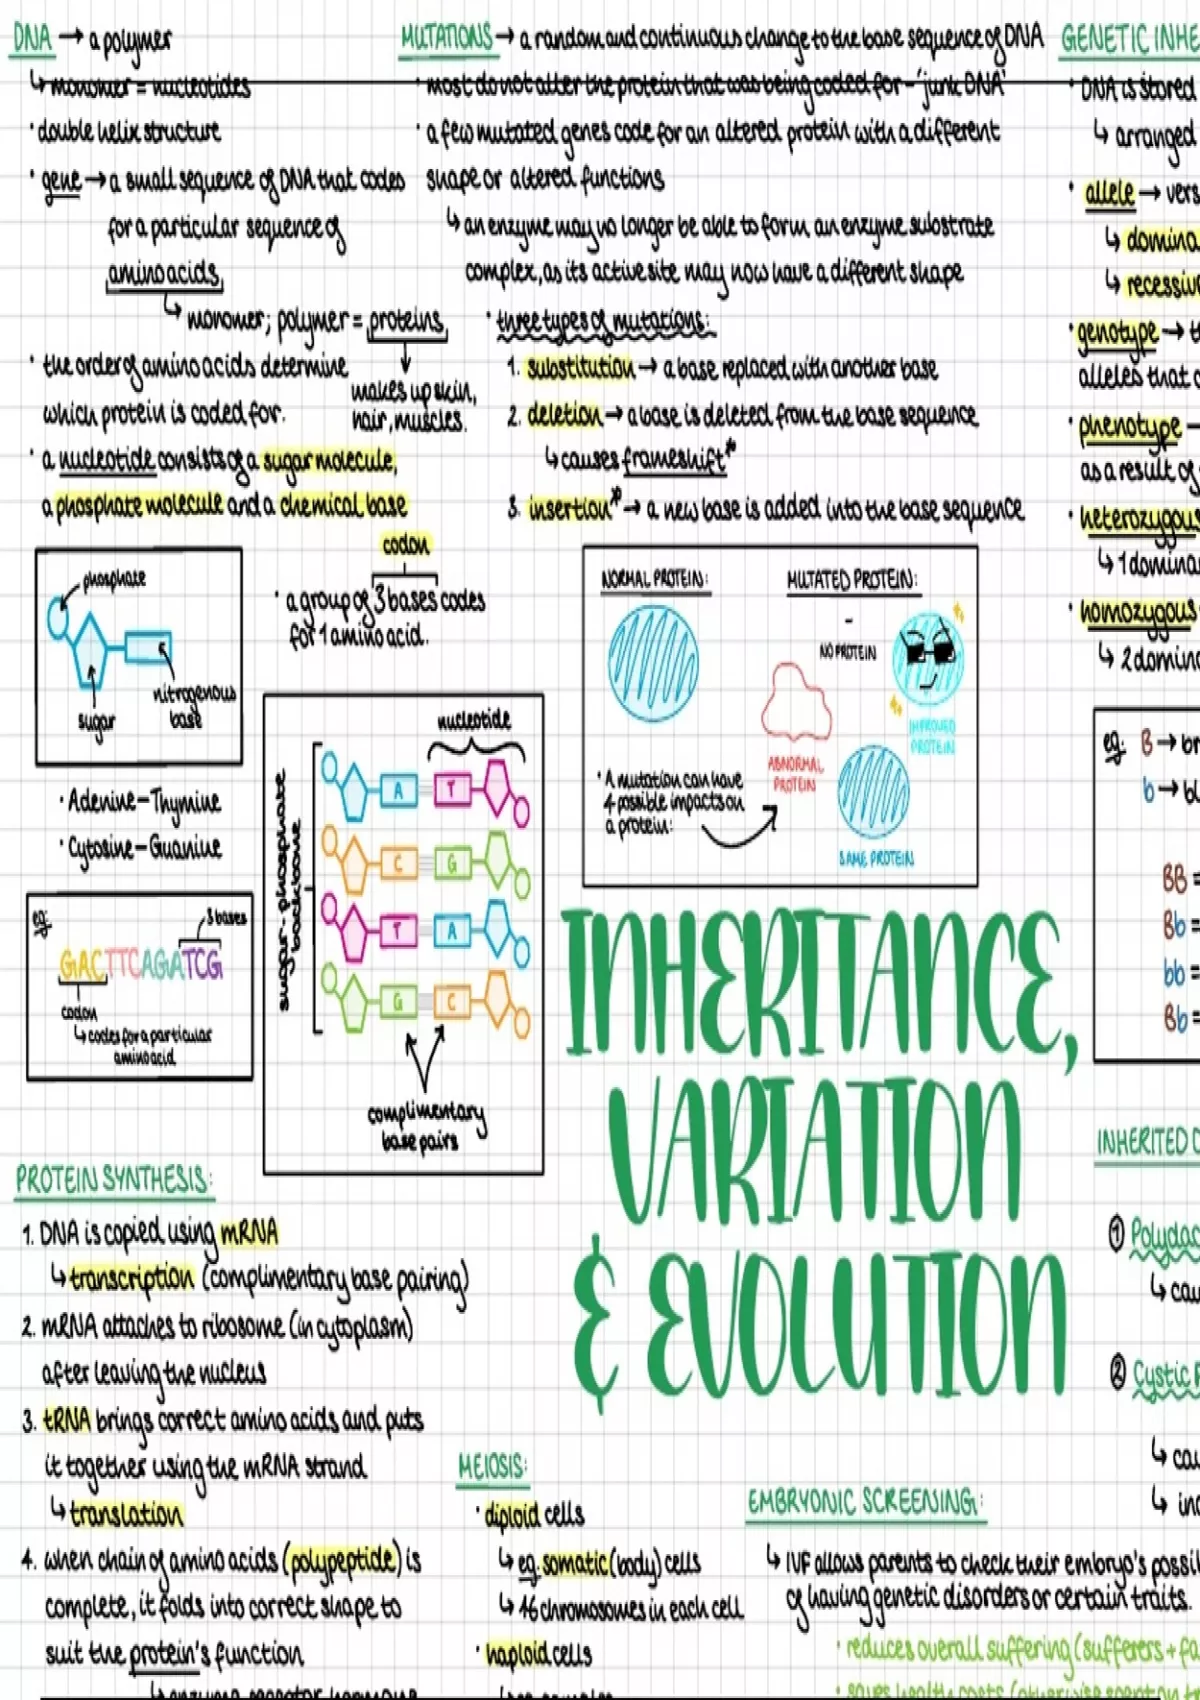 DNA → a polymer
↳ monomer = nucleotides
· double helix structure
· gene → a small sequence of DNA that codes
for a particular sequence of
amino acids
↳ monomer; polymer = proteins
↓
makes up skin,
hair, muscles.
· the order of amino acids determine
which protein is coded for.
· a nucleotide consists of a sugar molecule,
a phosphate molecule and a chemical base
phosphate
sugar
nitrogenous
base
codon
· a group of 3 bases codes
for 1 amino acid.
· Adenine – Thymine
· Cytosine – Guanine
eg:
3 bases
GACTTCAGATCG
codon
↳ codes for a particular
amino acid
nucleotide
sugar-phosphate
backbone
A T
C G
T A
G C
complimentary
base pairs
PROTEIN SYNTHESIS:
1. DNA is copied using mRNA
↳ transcription (complimentary base pairing)
2. mRNA attaches to ribosome (in cytoplasm)
after leaving the nucleus
3. tRNA brings correct amino acids and puts
it together using the mRNA strand
↳ translation
4. when chain of amino acids (polypeptide) is
complete, it folds into correct shape to
suit the protein's function
↳ enzyme, receptor, hormone
MUTATIONS → a random and continuous change to the base sequence of DNA
· most do not alter the protein that was being coded for – 'junk DNA'
· a few mutated genes code for an altered protein with a different
shape or altered functions
↳ an enzyme may no longer be able to form an enzyme substrate
complex, as its active site may now have a different shape
· three types of mutations:
1. substitution → a base replaced with another base
2. deletion → a base is deleted from the base sequence
↳ causes frameshift*
3. insertion* → a new base is added into the base sequence
NORMAL PROTEIN:
MUTATED PROTEIN:
–
NO PROTEIN
IMPROVED
PROTEIN
ABNORMAL
PROTEIN
SAME PROTEIN
· A mutation can have
4 possible impacts on
a protein:
INHERITANCE,
VARIATION
& EVOLUTION
MEIOSIS:
· diploid cells
↳ eg. somatic (body) cells
↳ 46 chromosomes in each cell
· haploid cells
EMBRYONIC SCREENING:
↳ IVF allows parents to check their embryo's possi
of having genetic disorders or certain traits.
· reduces overall suffering (sufferers + fa
· saves health costs (otherwise spent on tr
GENETIC INHE
· DNA is stored
↳ arranged
· allele → vers
↳ domina
↳ recessiv
· genotype → t
alleles that c
· phenotype –
as a result of
· heterozygous
↳ 1 domina
· homozygous
↳ 2 domina
eg. B → br
b → bl
BB =
Bb =
bb =
Bb =
INHERITED
① Polydac
↳ cau
② Cystic F
↳ cau
↳ inc